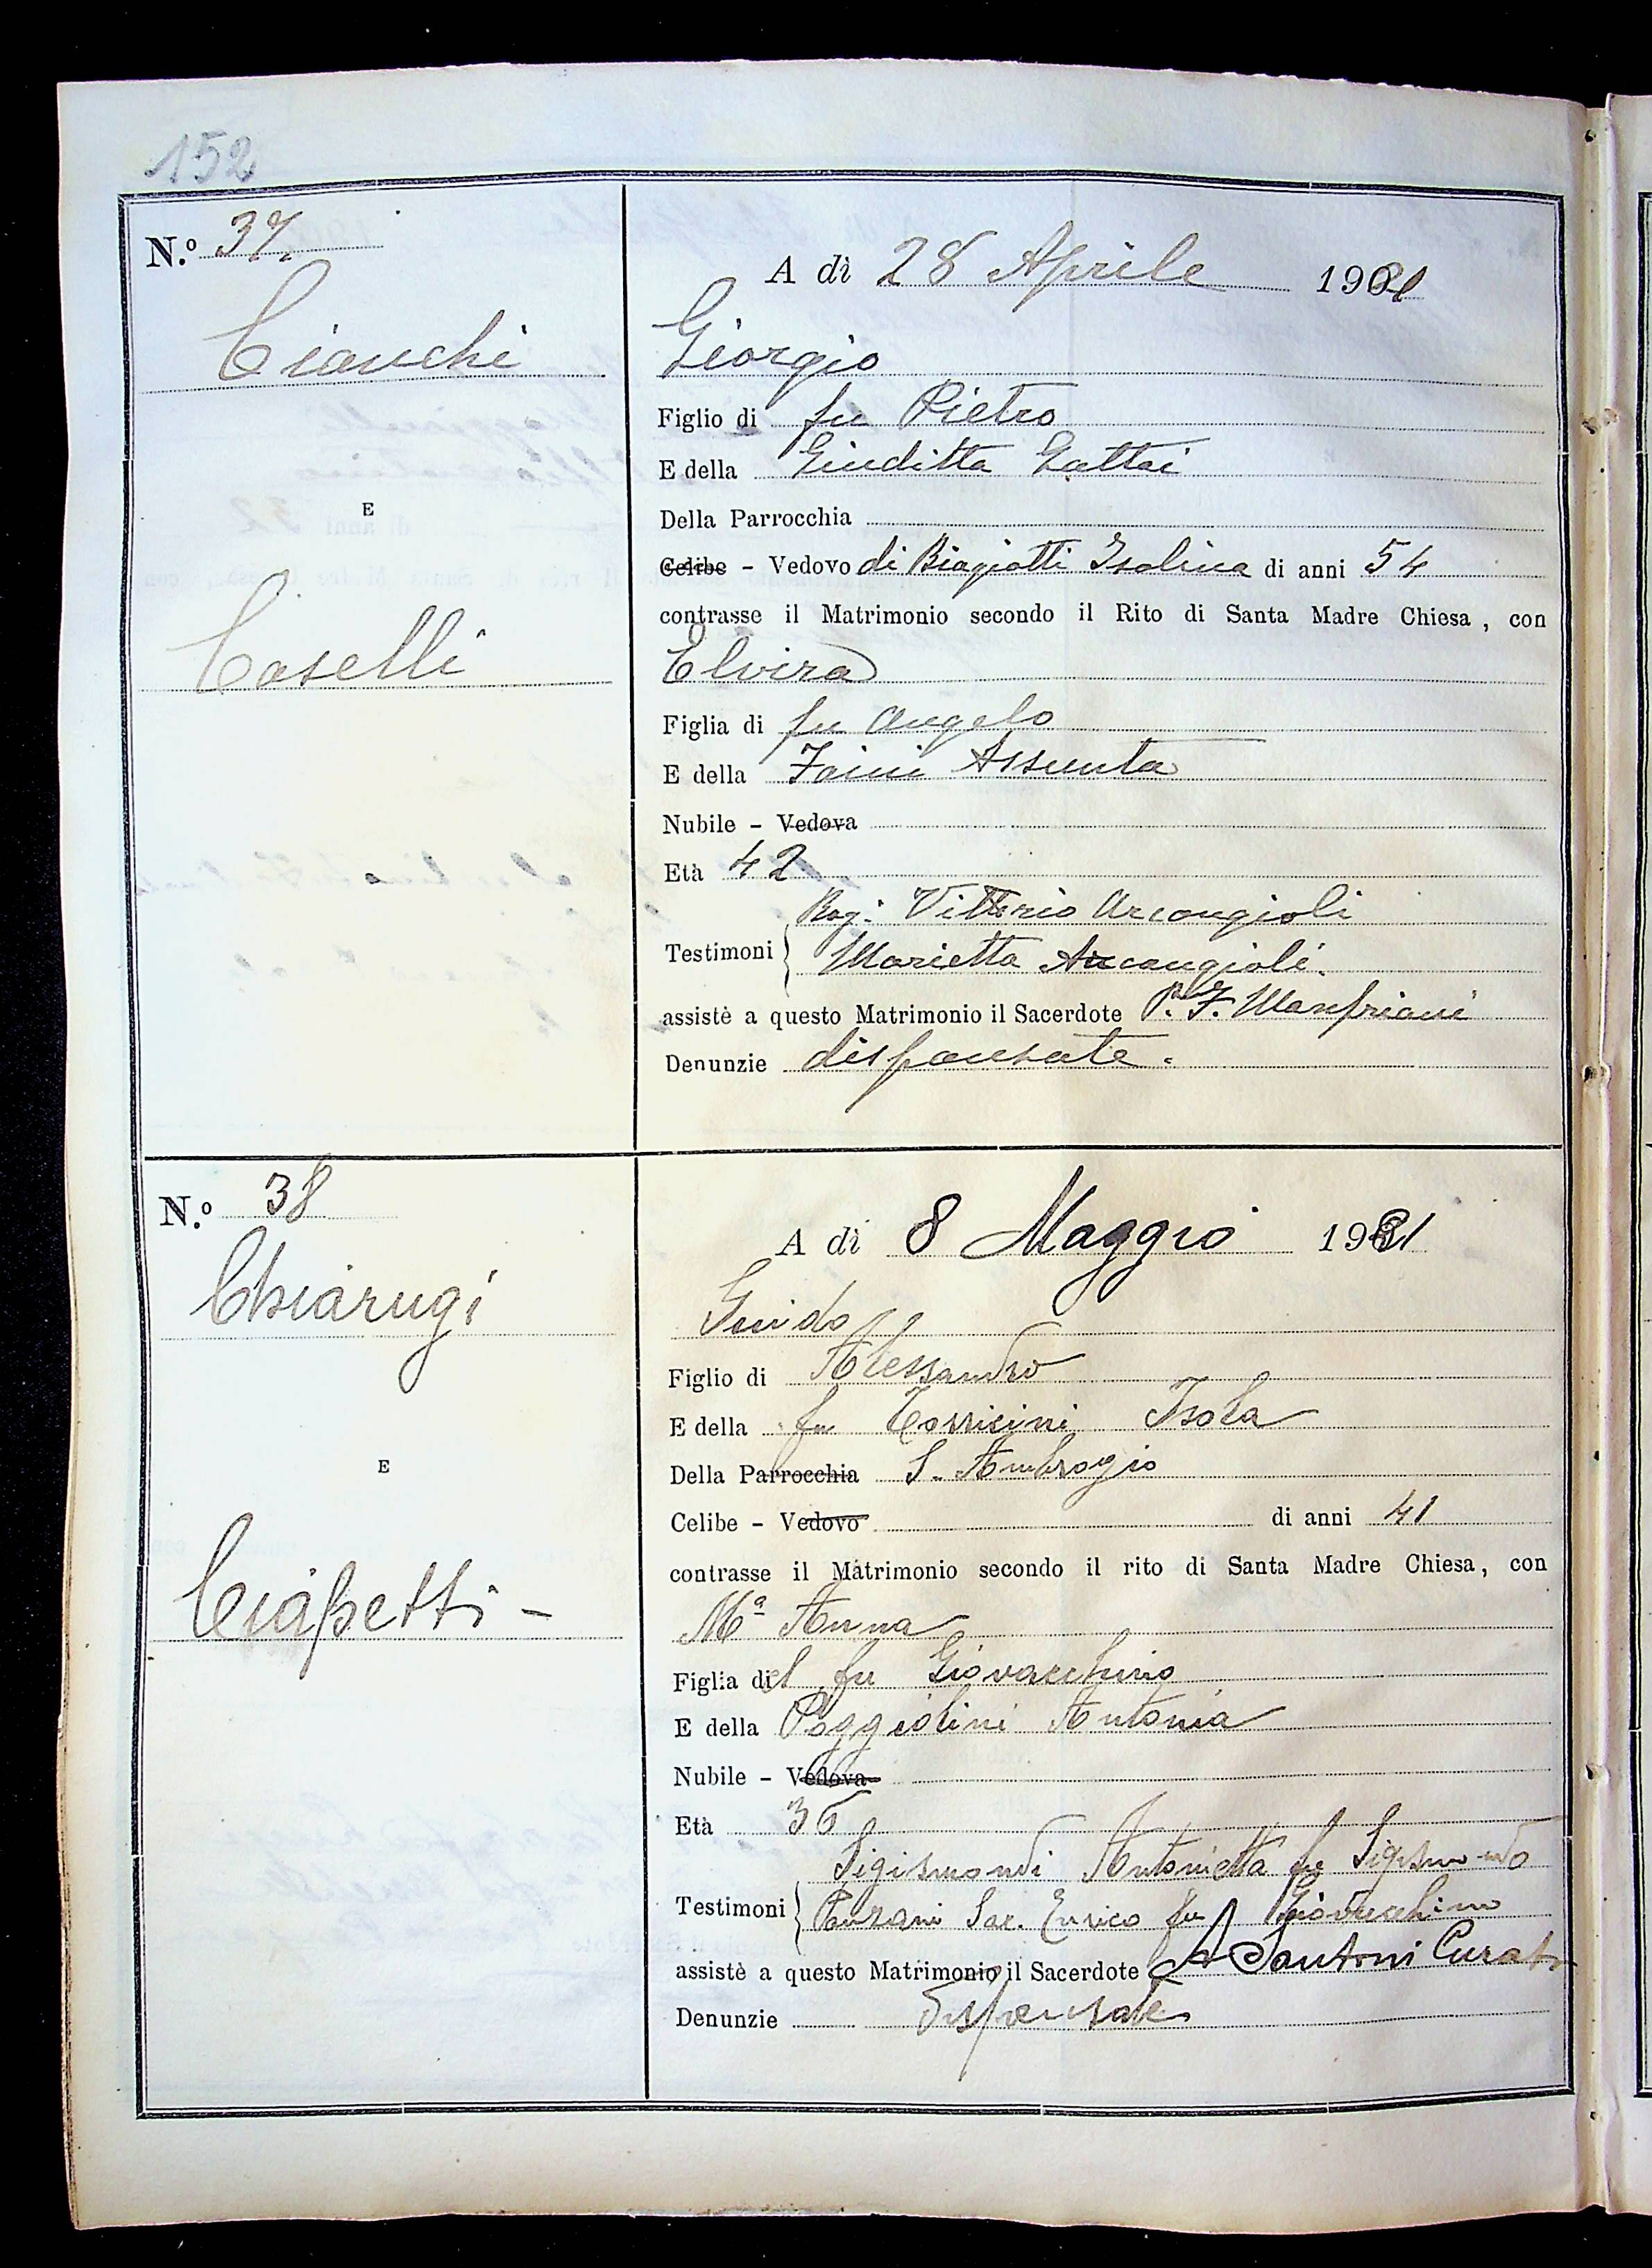 152
N.º 37.
A dì 28 Aprile 1931
Cianchi
Giorgio
Figlio di fu Pietro
E della Giuditta Gattai
E
Della Parrocchia
Celibe - Vedovo di Biagiotti Isolina di anni 54
contrasse il Matrimonio secondo il Rito di Santa Madre Chiesa, con
Caselli
Elvira
Figlia di fu Angelo
E della Faini Assunta
Nubile - Vedova
Età 42
Rag: Vittorio Arcangioli
Testimoni Marietta Arcangioli.
assistè a questo Matrimonio il Sacerdote P. F. Manfriani
Denunzie dispensate.
N.º 38
A dì 8 Maggio 1931
Chiarugi
Guido
Figlio di Alessandro
E della fu Torricini Isola
E
Della Parrocchia S. Ambrogio
Celibe - Vedovo di anni 41
contrasse il Matrimonio secondo il rito di Santa Madre Chiesa, con
Ciapetti -
Mª Anna
Figlia del fu Giovacchino
E della Poggiolini Antonia
Nubile - Vedova
Età 36
Sigismondi Antonietta fu Sigismondo
Testimoni Sac. Enrico fu Giovacchino
assistè a questo Matrimonio il Sacerdote A Santoni Curato
Denunzie Dispensate